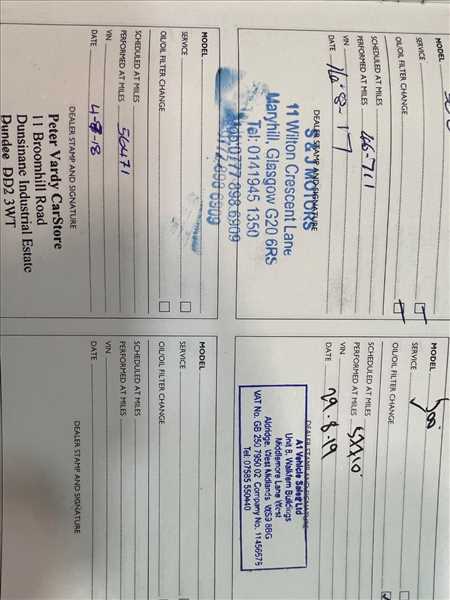 MODEL
SERVICE
OIL/OIL FILTER CHANGE
SCHEDULED AT MILES
PERFORMED AT MILES 46-761
VIN
DATE
DEALER STAMP AND SIGNATURE
S & J MOTORS
11 Wilton Crescent Lane
Maryhill, Glasgow G20 6RS
Tel: 0141945 1350
MODEL
SERVICE
OIL/OIL FILTER CHANGE
SCHEDULED AT MILES
PERFORMED AT MILES
VIN
DATE 29.8.19
DEALER STAMP AND SIGNATURE
A1 Vehicle Sales Ltd
Unit 8, Walkfern Buildings
Middlemore Lane West
Aldridge, West Midlands WS9 8BG
VAT No. GB 250 7950 02 Company No. 11456575
Tel. 07585 550440
MODEL
SERVICE
OIL/OIL FILTER CHANGE
SCHEDULED AT MILES
PERFORMED AT MILES 56471
VIN
DATE 4-8-18
DEALER STAMP AND SIGNATURE
Peter Vardy CarStore
11 Broomhill Road
Dunsinane Industrial Estate
Dundee DD2 3WT
MODEL
SERVICE
OIL/OIL FILTER CHANGE
SCHEDULED AT MILES
PERFORMED AT MILES
VIN
DATE
DEALER STAMP AND SIGNATURE